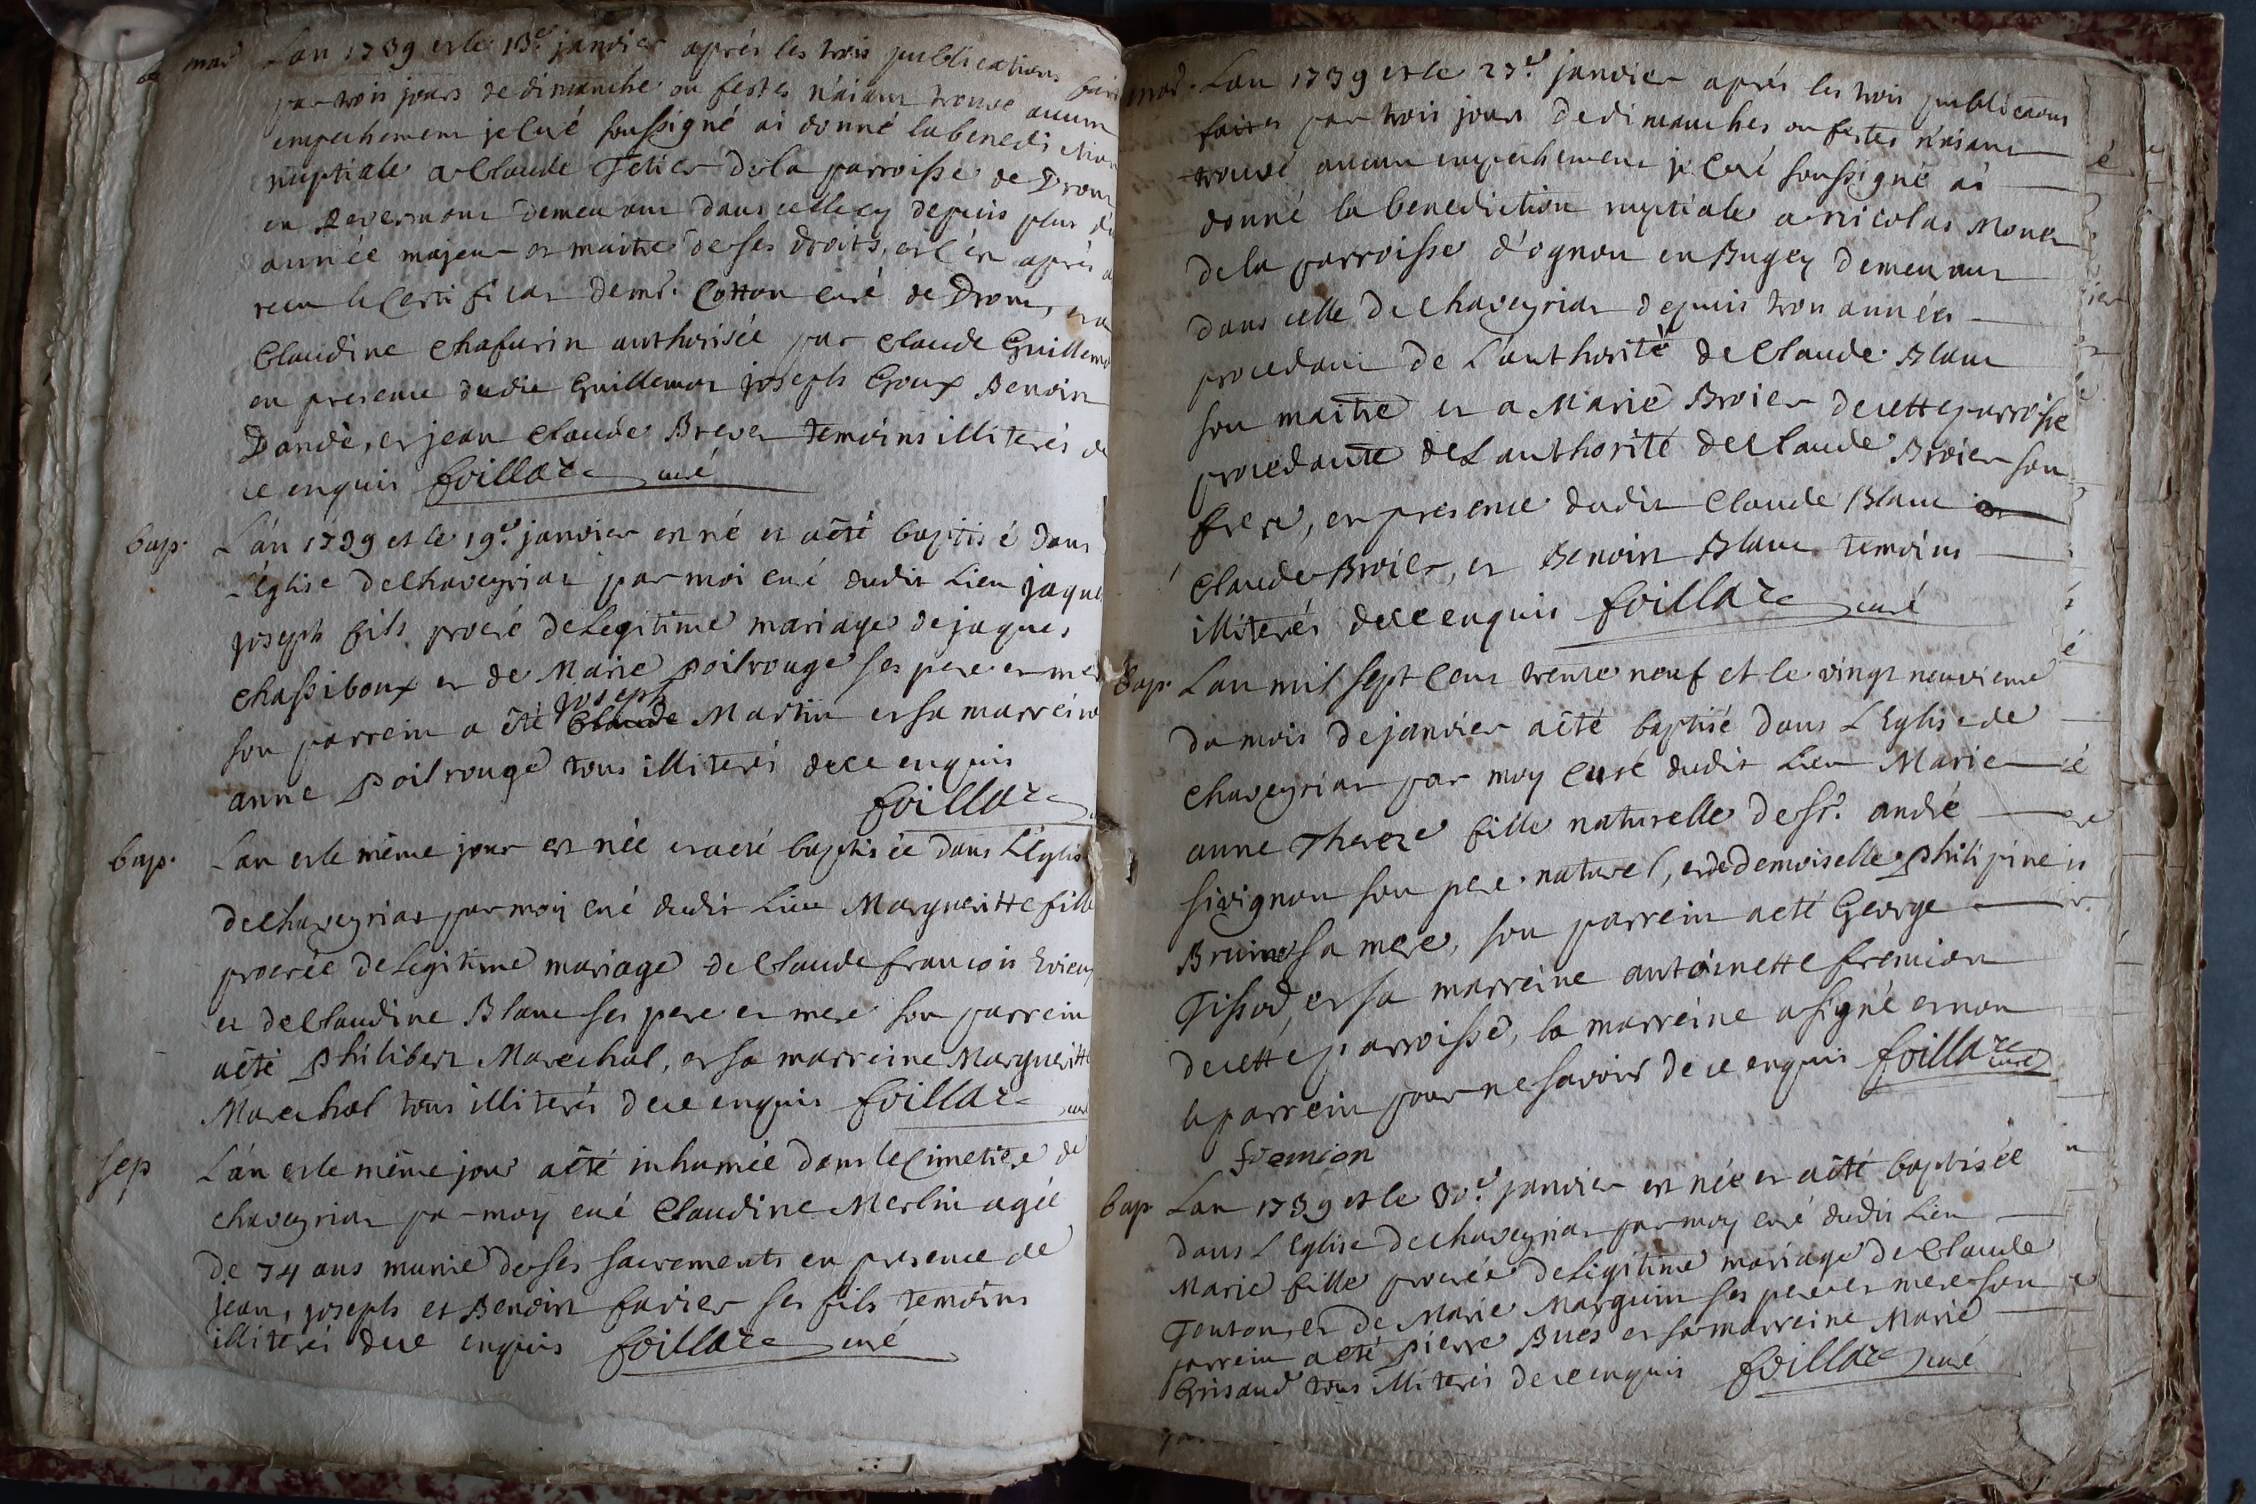 mar. Lan 1739 et le 13.e janvier aprés les trois publications
par trois jours de dimanche ou festes n'aiant trouvé aucun
empechement je curé soussigné ai donné la benediction
nuptiale a Claude Tetier de la parroisse de Drom
en Revermont demeurant dans celle cy depuis plus d'u
année majeur et maitre de ses droits, et l'en après a
receu le certificat de mr. Cotton curé de Drom, et a
Claudine Chafurin authorisée par Claude Guillemot
en presence dudit Guillemot joseph Goux Benoit
Dandé, et jean Claude Brevet temoins illiterés de
ce enquis foillaz curé
bap. L'an 1739 et le 19.e janvier est né et a été baptisé dans
L'Église de Chaveyriat par moi curé dudit Lieu jaque
joseph fils procréé de Legitime mariage de jaques
Chassiboux et de Marie Poilrouge ses pere et mere
son parrein a été Claude joseph Martin et sa marreine
anne Poilrouge tous illiterés de ce enquis
foillaz
bap. Lan et le même jour est née et a eté baptisée dans L'Églis
de Chaveyriat par moy curé dudit Lieu Margueritte fille
procréée de Legitime mariage de Claude francois
et de Claudine Blanc ses pere et mere son parrein
a été Philibert Marechal, et sa marreine Margueritte
Marechal tous illiterés de ce enquis foillaz curé
sep L'án et le même jour a été inhumée dans le Cimetiere de
chaveyriat par moy curé Claudine Merlin agée
de 74 ans munie de ses sacrements en presence de
jean, joseph et Benoit favier ses fils temoins
illiterés de ce enquis foillaz curé
mar. Lan 1739 et le 27.e janvier aprés les trois publications
faites par trois jours de dimanches ou festes n'aiant
trouvé aucun empechement je curé soussigné ai
donné la benediction nuptiale a nicolas Monet
de la parroisse d'ognon en Bugey demeurant
dans celle de Chaveyriat depuis trois années
procedant de L'authorité de Claude Blanc
son maitre et a Marie Broier de cette parroisse
procedante de L'authorité de Claude Broier son
frere, en presence dudit Claude Blanc et
Claude Broier, et Benoit Blanc temoins
illiterés de ce enquis foillaz curé
Bap. Lan mil sept cent trente neuf et le vingt neuvieme
du mois de janvier a été baptisé dans L'Eglise de
chaveyriat par moy curé dudit Lieu Marie
anne Thereze fille naturelle de sr. andré
sivignon son pere naturel, et de demoiselle Philipine
Bruino sa mere, son parrein a eté George
Tissod, et sa marreine antoinette fremion
de cette parroisse, la marreine a signé et non
le parrein pour ne savoir de ce enquis foillaz curé
fremion
bap Lan 1739 et le 30.e janvier est née et a été baptisée
dans L'Eglise de chaveyriat par moy curé dudit Lieu
Marie fille procréée de Legitime mariage de Claude
Touton, et de Marie Marguin ses pere et mere son
parrein a été pierre Bués et sa marreine Marie
Grisaud tous illiterés de ce enquis foillaz curé